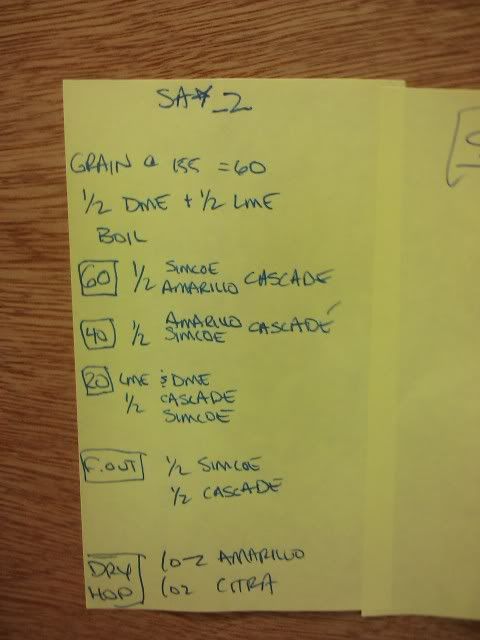 GRAIN @ 155 = 60
1/2 DME + 1/2 LME
BOIL
60 1/2 SIMCOE AMARILLO CASCADE
40 1/2 AMARILLO SIMCOE CASCADE
20 LME & DME
1/2 CASCADE
SIMCOE
F.OUT 1/2 SIMCOE
1/2 CASCADE
DRY HOP 1oz AMARILLO
1oz CITRA